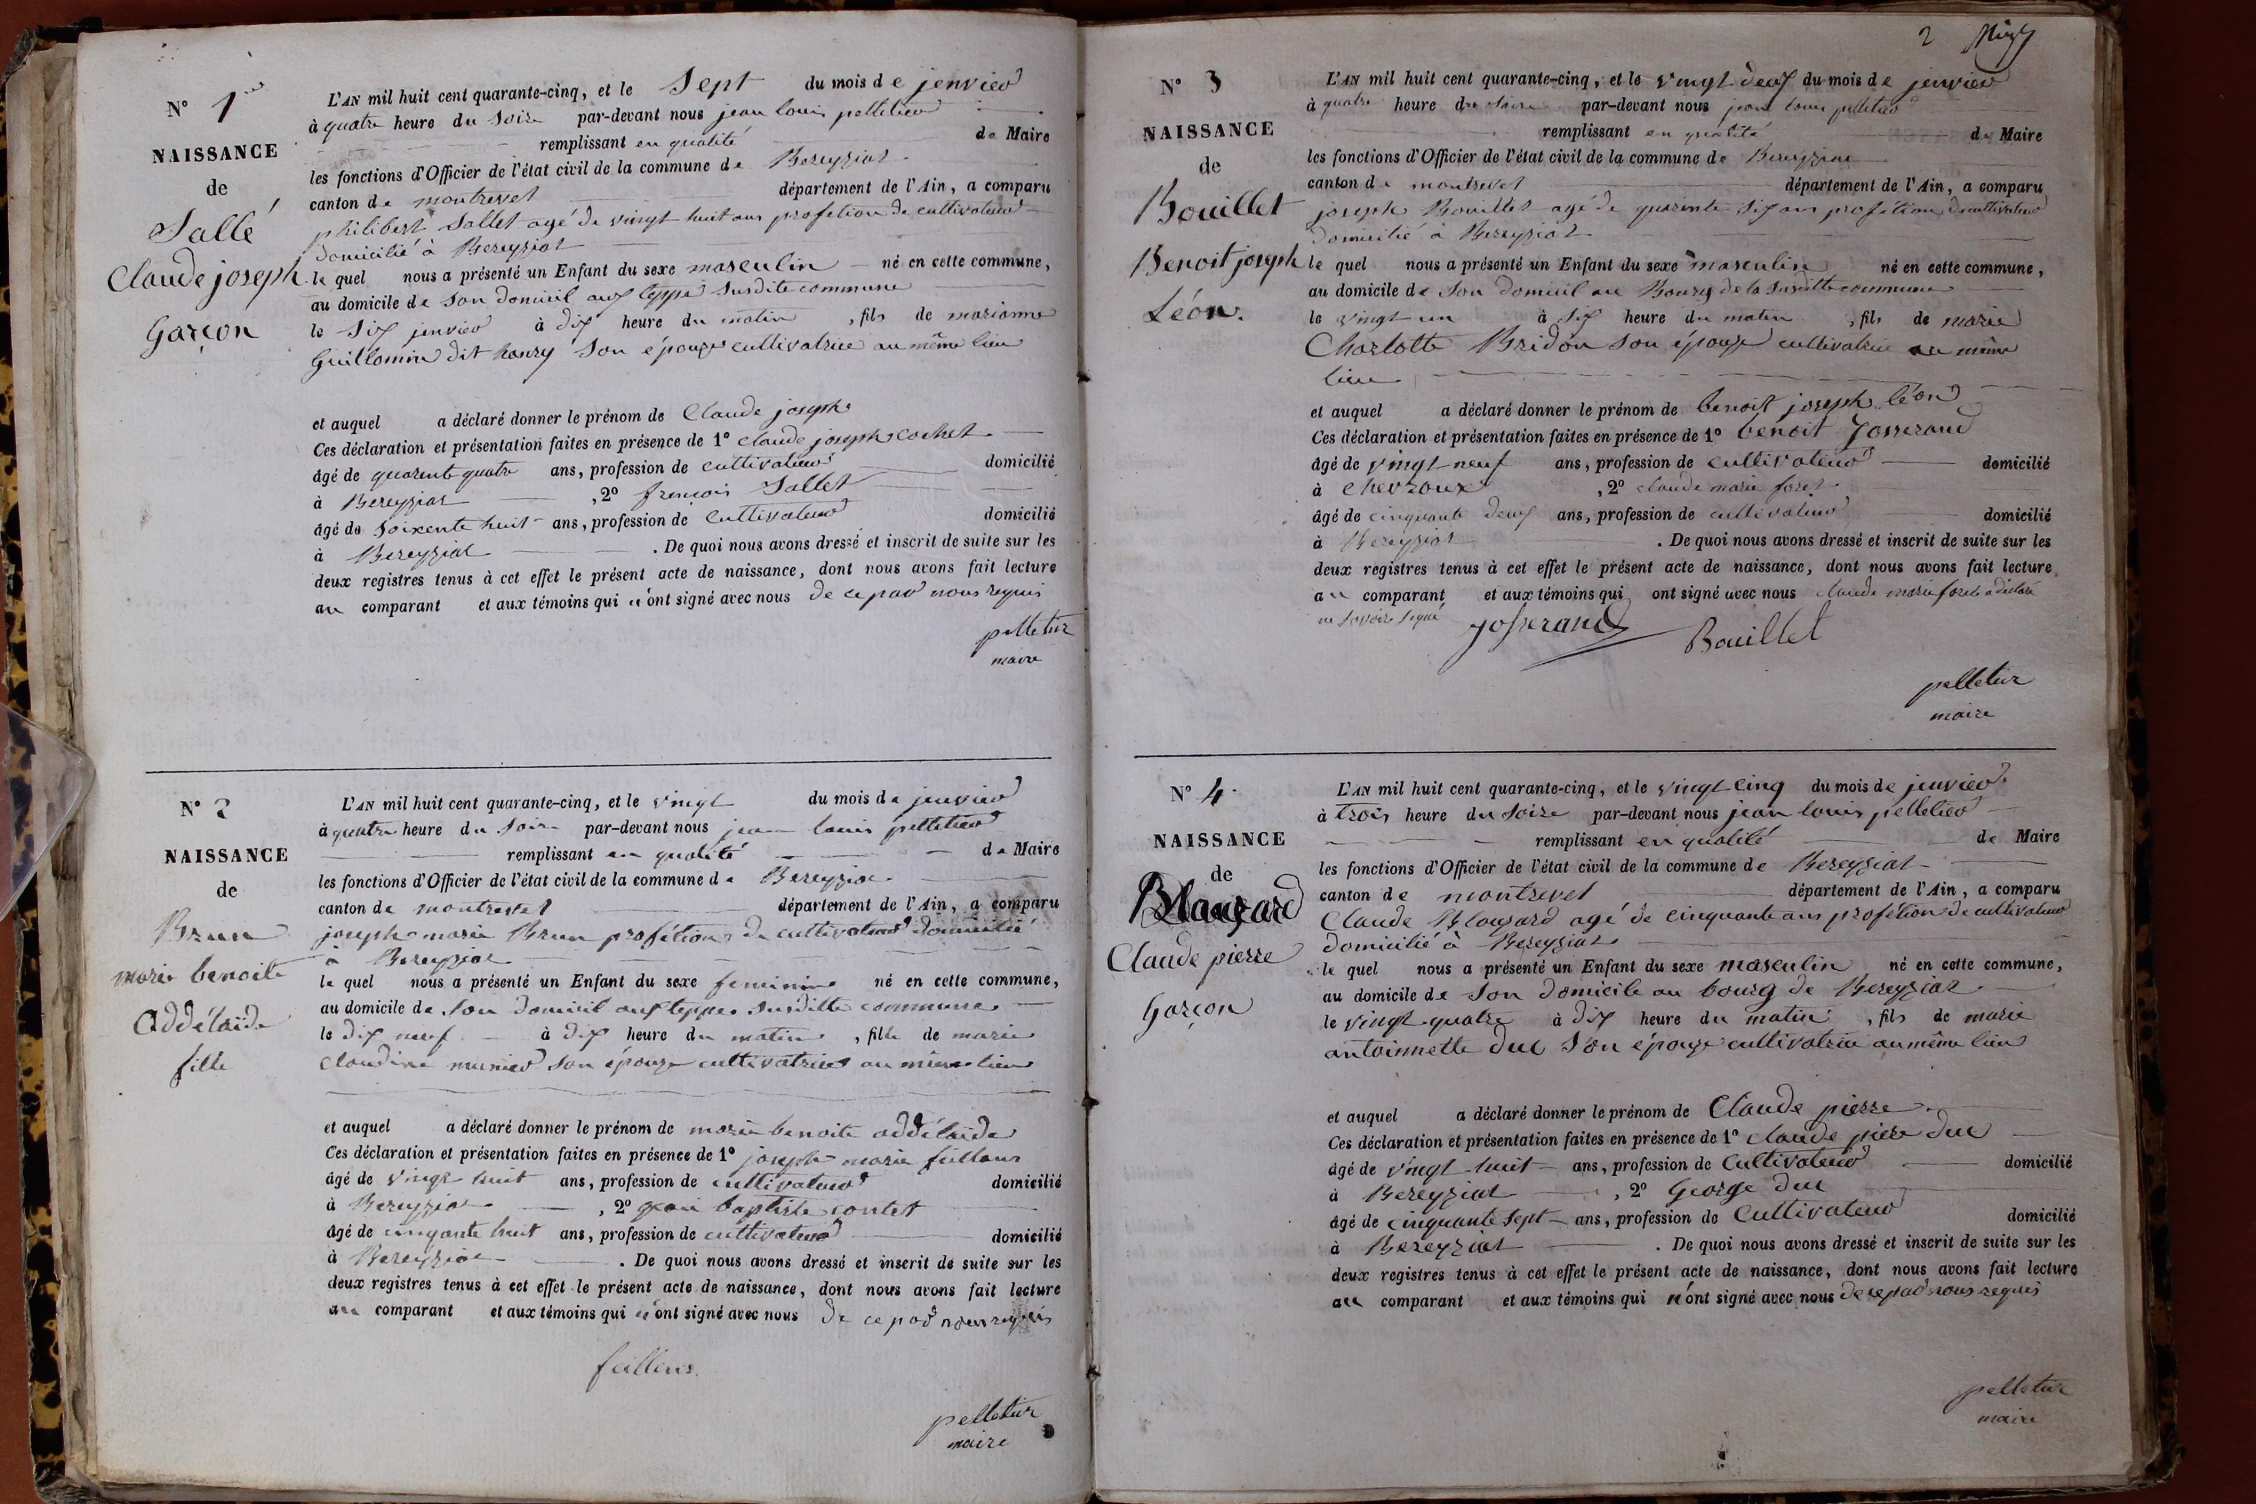 N° 1er
NAISSANCE
de
Sallé
Claude joseph
Garçon
L'AN mil huit cent quarante-cinq, et le Sept du mois de jenvier
à quatre heure du Soire par-devant nous jean louis pelletier
remplissant en qualité de Maire
les fonctions d'Officier de l'état civil de la commune de Bereyziat
canton de montrevel département de l'Ain, a comparu
philibert Sallet agé de vingt huit ans profetion de cultivateur
domicilié à Bereyziat
le quel nous a présenté un Enfant du sexe masculin né en cette commune,
au domicile de Son domicil aux teppe Susdite commune
le Six jenvier à dix heure du matin, fils de marianne
Guillomin dit hanry Son épouze cultivatrice au même lieu
et auquel a déclaré donner le prénom de Claude joseph
Ces déclaration et présentation faites en présence de 1° claude joseph cochet
âgé de quarente quatre ans, profession de cultivateur domicilié
à Bereyziat, 2° francois Sallet
âgé de Soixente huit ans, profession de Cultivateur domicilié
à Bereyziat. De quoi nous avons dressé et inscrit de suite sur les
deux registres tenus à cet effet le présent acte de naissance, dont nous avons fait lecture
au comparant et aux témoins qui n'ont signé avec nous de ce par nous requis
pelletier
maire
N° 2
NAISSANCE
de
Brun
marie benoite
Addélaïde
fille
L'AN mil huit cent quarante-cinq, et le vingt du mois de jenvier
à quatre heure du Soire par-devant nous jean louis pelletier
remplissant en qualité de Maire
les fonctions d'Officier de l'état civil de la commune de Bereyziat
canton de montrevel département de l'Ain, a comparu
joseph marie Brun profétion de cultivateur domicilié
à Bereyziat
le quel nous a présenté un Enfant du sexe feminine né en cette commune,
au domicile de Son domicil aux teppes Susditte commune
le dix neuf à dix heure du matin, fille de marie
Claudine munier Son épouze cultivatrice au même lieu
et auquel a déclaré donner le prénom de marie benoite addélaïde
Ces déclaration et présentation faites en présence de 1° joseph marie feillens
âgé de vingt huit ans, profession de cultivateur domicilié
à Bereyziat, 2° jean baptiste contet
âgé de cinqante huit ans, profession de cultivateur domicilié
à Bereyziat. De quoi nous avons dressé et inscrit de suite sur les
deux registres tenus à cet effet le présent acte de naissance, dont nous avons fait lecture
au comparant et aux témoins qui n'ont signé avec nous de ce par nous requis
feillens
pelletier
maire
2
N° 3
NAISSANCE
de
Bouillet
Benoit joseph
Léon.
L'AN mil huit cent quarante-cinq, et le vingt deux du mois de jenvier
à quatre heure du Soire par-devant nous jean louis pelletier
remplissant en qualité de Maire
les fonctions d'Officier de l'état civil de la commune de Bereyziat
canton de montrevel département de l'Ain, a comparu
joseph Bouillet agé de quarente Six ans profétion de cultivateur
domicilié à Bereyziat
le quel nous a présenté un Enfant du sexe masculin né en cette commune,
au domicile de Son domicil au Bourg de la Susditte commune
le vingt un à Six heure du matin, fils de marie
Charlotte Bridon Son épouze cultivatrice au même
lieu
et auquel a déclaré donner le prénom de benoit joseph léon
Ces déclaration et présentation faites en présence de 1° benoit Josserand
âgé de vingt neuf ans, profession de cultivateur domicilié
à Chevroux, 2° claude marie foret
âgé de cinquante deux ans, profession de cultivateur domicilié
à Bereyziat. De quoi nous avons dressé et inscrit de suite sur les
deux registres tenus à cet effet le présent acte de naissance, dont nous avons fait lecture
au comparant et aux témoins qui ont signé avec nous claude marie foret a déclaré
ne Savoire Signé
Josserand
Bouillet
pelletier
maire
N° 4
NAISSANCE
de
Blanzard
Claude pierre
Garçon
L'AN mil huit cent quarante-cinq, et le vingt Cinq du mois de jenvier
à trois heure du Soire par-devant nous jean louis pelletier
remplissant en qualité de Maire
les fonctions d'Officier de l'état civil de la commune de Bereyziat
canton de montrevel département de l'Ain, a comparu
Claude Blanzard agé de cinquante ans profétion de cultivateur
domicilié à Bereyziat
le quel nous a présenté un Enfant du sexe masculin né en cette commune,
au domicile de Son domicile au bourg de Bereyziat
le vingt quatre à dix heure du matin, fils de marie
antoinnette duc Son épouze cultivatrice au même lieu
et auquel a déclaré donner le prénom de Claude pierre
Ces déclaration et présentation faites en présence de 1° claude piere duc
âgé de vingt huit ans, profession de Cultivateur domicilié
à Bereyziat, 2° George duc
âgé de cinquante Sept ans, profession de Cultivateur domicilié
à Bereyziat. De quoi nous avons dressé et inscrit de suite sur les
deux registres tenus à cet effet le présent acte de naissance, dont nous avons fait lecture
au comparant et aux témoins qui n'ont signé avec nous de ce par nous requis
pelletier
maire